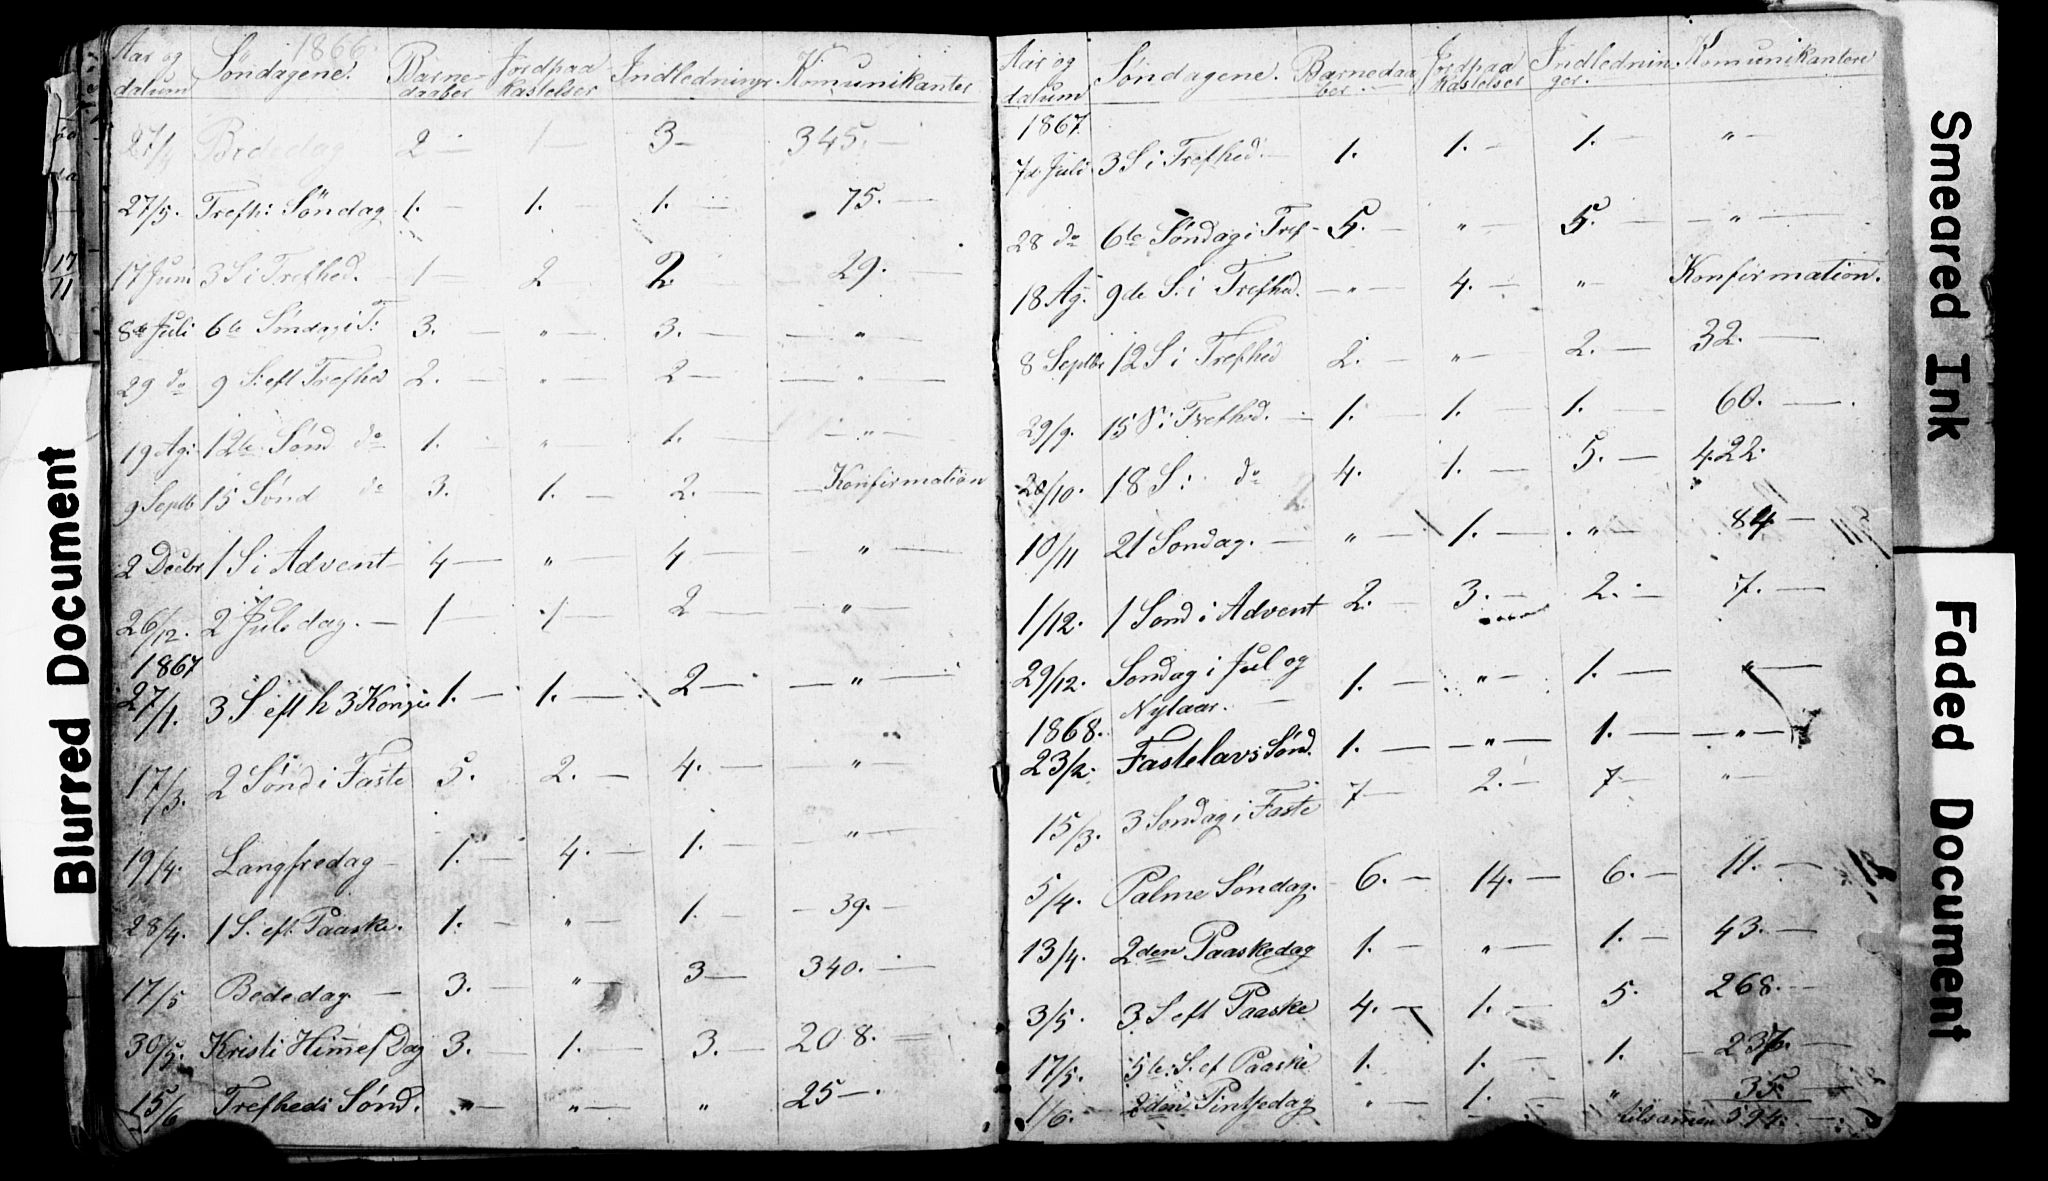 Aar og datum Søndagene. 1866. Barnedaaber Jordpaakastelser Indlednings Komunikanter
27/4 Bededag 2 — 1 — 3 — 345. —
27/5. Trefh: Søndag 1. — 1. — 1. — 75. —
17 Juni 3 S i Trefhed. — 1 — 2 2 29. —
8de Juli 6te Søndag i T: 3. — „ — 3. — — „
29 do 9 S: eft Trefhed 2. — „ — 2 — — „ —
19 Ag: 12te Sønd do 1. — „ 1. — — „ —
9 Septb. 15 Sønd do 3. 1. — 2. — — Konfirmation
2 Decbr 1 S i Advent — 4 — „ — 4 — „ —
26/12. 2 Juledag. — 1 — 1 — 2 — — „ —
1867
27/1. 3 S eft h 3 Konger 1. — 1. — 2 — — „ —
17/3. 2 Sønd i Faste 5. 2. — 4. — — „
19/4. Langfredag — 1. — 4. — 1. — „ —
28/4. 1 S. eft. Paaske. 1. — „ — 1. — — 39. —
17/5 Bededag — 3. — „ — 3 — 340. —
30/5. Kristi Himmef Dag 3. — 1. — 3. — 208. —
15/6 Trefheds Sønd. „ — „ — „ 25 —.
Aar og datum Søndagene. Barnedaaber. Jordpaakastelser Indledninger. Komunikantere
1867
7de Juli 3 S i Trefhed. — 1. 1. — 1. — „ —
28 do 6te Søndag i Tref — 5. — „ — 5. — — „ —
18 Ag. 9de S. i Trefhed. — „ — 4. — „ Konfirmation.
8 Septbr 12 S i Trefhed 2. — „ — 2. — 32. —
29/9. 15 S i Trefhed. — 1. — 1. — 1. — 60. —
20/10. 18 S: do 4. 1. — 5. — 422.
10/11 21 Søndag. — „ — 1. — „ — 84 —
1/12. 1 Sønd i Advent 2. — 3. — 2. — 7. —
29/12. Søndag i Jul og
Nytaar. — 1. — „ — 1. — „ —
1868.
23/2. Fastelavs Sønd. 1. — — „ — 1. — — „ —
15/3. 3 Søndag i Faste 7 — 2. — 7 — „ —
5/4. Palme Søndag. 6. — 14. — 6. — 11. —
13/4. 2den Paaskedag 1. — „ — 1. — 43. —
3/5. 3. S eft Paaske 4. — 1. — 5. 268. —
17/5. 5te. S. ef Paaske 1. 1. — 1. — 236. —
1/6. 2den Pintsedag „ — 1. — „ 35. —
tilsammen 594. —
Blurred Document
Smeared Ink
Faded Document